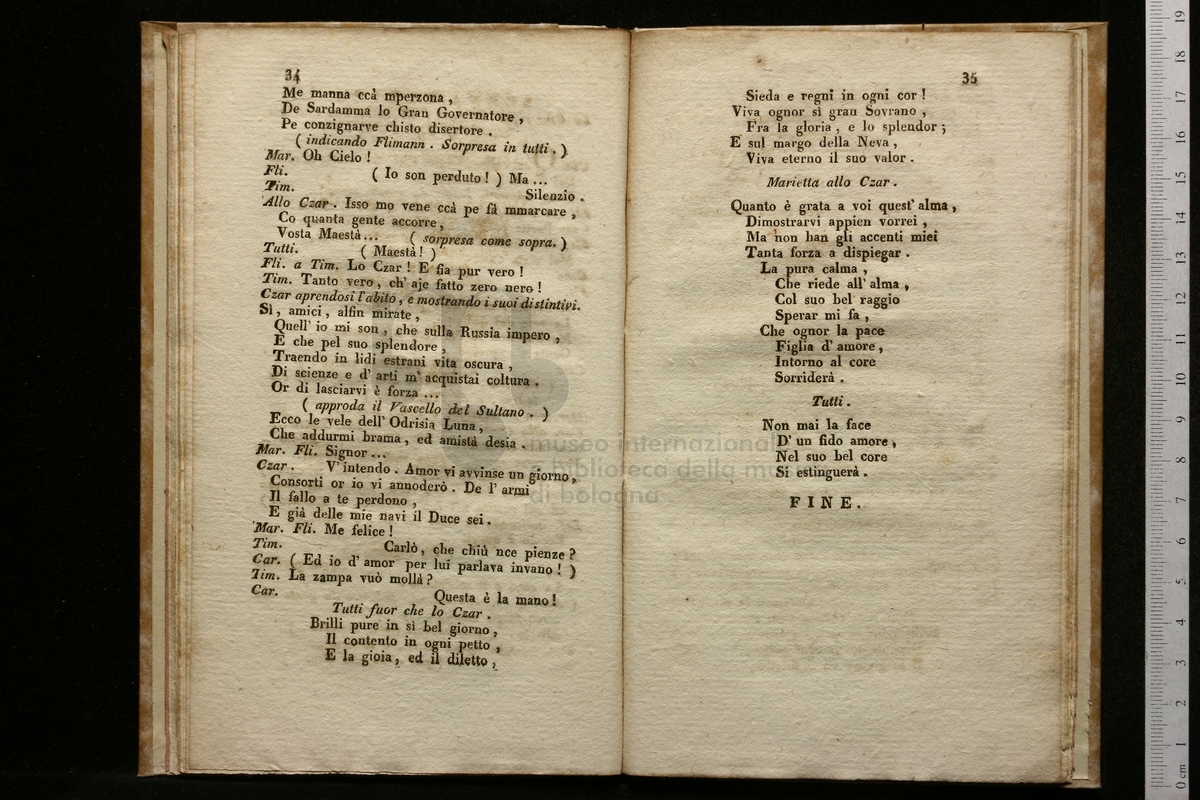 34
Me manna ccà mperzona,
De Sardamma lo Gran Governatore,
Pe conzignarve chisto disertore.
( indicando Flimann. Sorpresa in tutti. )
Mar. Oh Cielo!
Fli. ( Io son perduto! ) Ma ...
Tim. Silenzio.
Allo Czar. Isso mo vene ccà pe fà mmarcare,
Co quanta gente accorre,
Vosta Maestà... ( sorpresa come sopra. )
Tutti. ( Maestà! )
Fli. a Tim. Lo Czar! E fia pur vero!
Tim. Tanto vero, ch' aje fatto zero nero!
Czar aprendosi l'abito, e mostrando i suoi distintivi.
Sì, amici, alfin mirate,
Quell' io mi son, che sulla Russia impero,
E che pel suo splendore,
Traendo in lidi estrani vita oscura,
Di scienze e d' arti m' acquistai coltura.
Or di lasciarvi è forza ...
( approda il Vascello del Sultano. )
Ecco le vele dell' Odrisia Luna,
Che addurmi brama, ed amistà desia.
Mar. Fli. Signor ...
Czar. V' intendo. Amor vi avvinse un giorno,
Consorti or io vi annoderò. De l' armi
Il fallo a te perdono,
E già delle mie navi il Duce sei.
Mar. Fli. Me felice!
Tim. Carlò, che chiù nce pienze?
Car. ( Ed io d' amor per lui parlava invano! )
Tim. La zampa vuò mollà?
Car. Questa è la mano!
Tutti fuor che lo Czar.
Brilli pure in sì bel giorno,
Il contento in ogni petto,
E la gioia, ed il diletto,
35
Sieda e regni in ogni cor!
Viva ognor sì gran Sovrano,
Fra la gloria, e lo splendor;
E sul margo della Neva,
Viva eterno il suo valor.
Marietta allo Czar.
Quanto è grata a voi quest' alma,
Dimostrarvi appien vorrei,
Ma non han gli accenti miei
Tanta forza a dispiegar.
La pura calma,
Che riede all' alma,
Col suo bel raggio
Sperar mi fa,
Che ognor la pace
Figlia d' amore,
Intorno al core
Sorriderà.
Tutti.
Non mai la face
D' un fido amore,
Nel suo bel core
Si estinguerà.
FINE.
museo internazionale
e biblioteca della mu
di bologna
0 cm 1 2 3 4 5 6 7 8 9 10 11 12 13 14 15 16 17 18 19